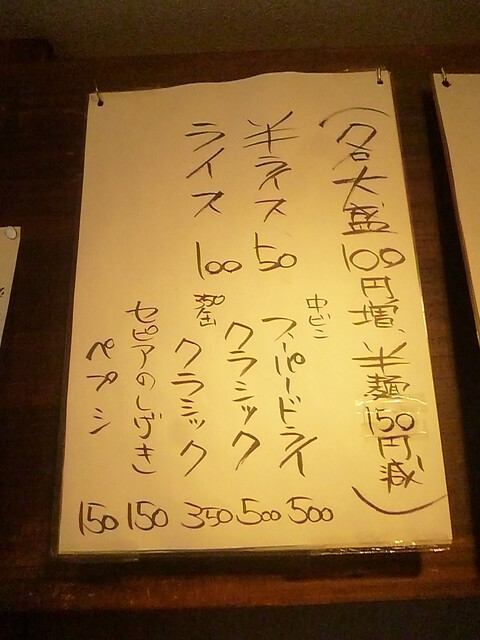 (各大盛100円増、半麺150円減)
半ライス 50
ライス 100
中ビン スーパードライ 500
クラシック 500
350缶 クラシック 350
セピアのしげき 150
ペプシ 150